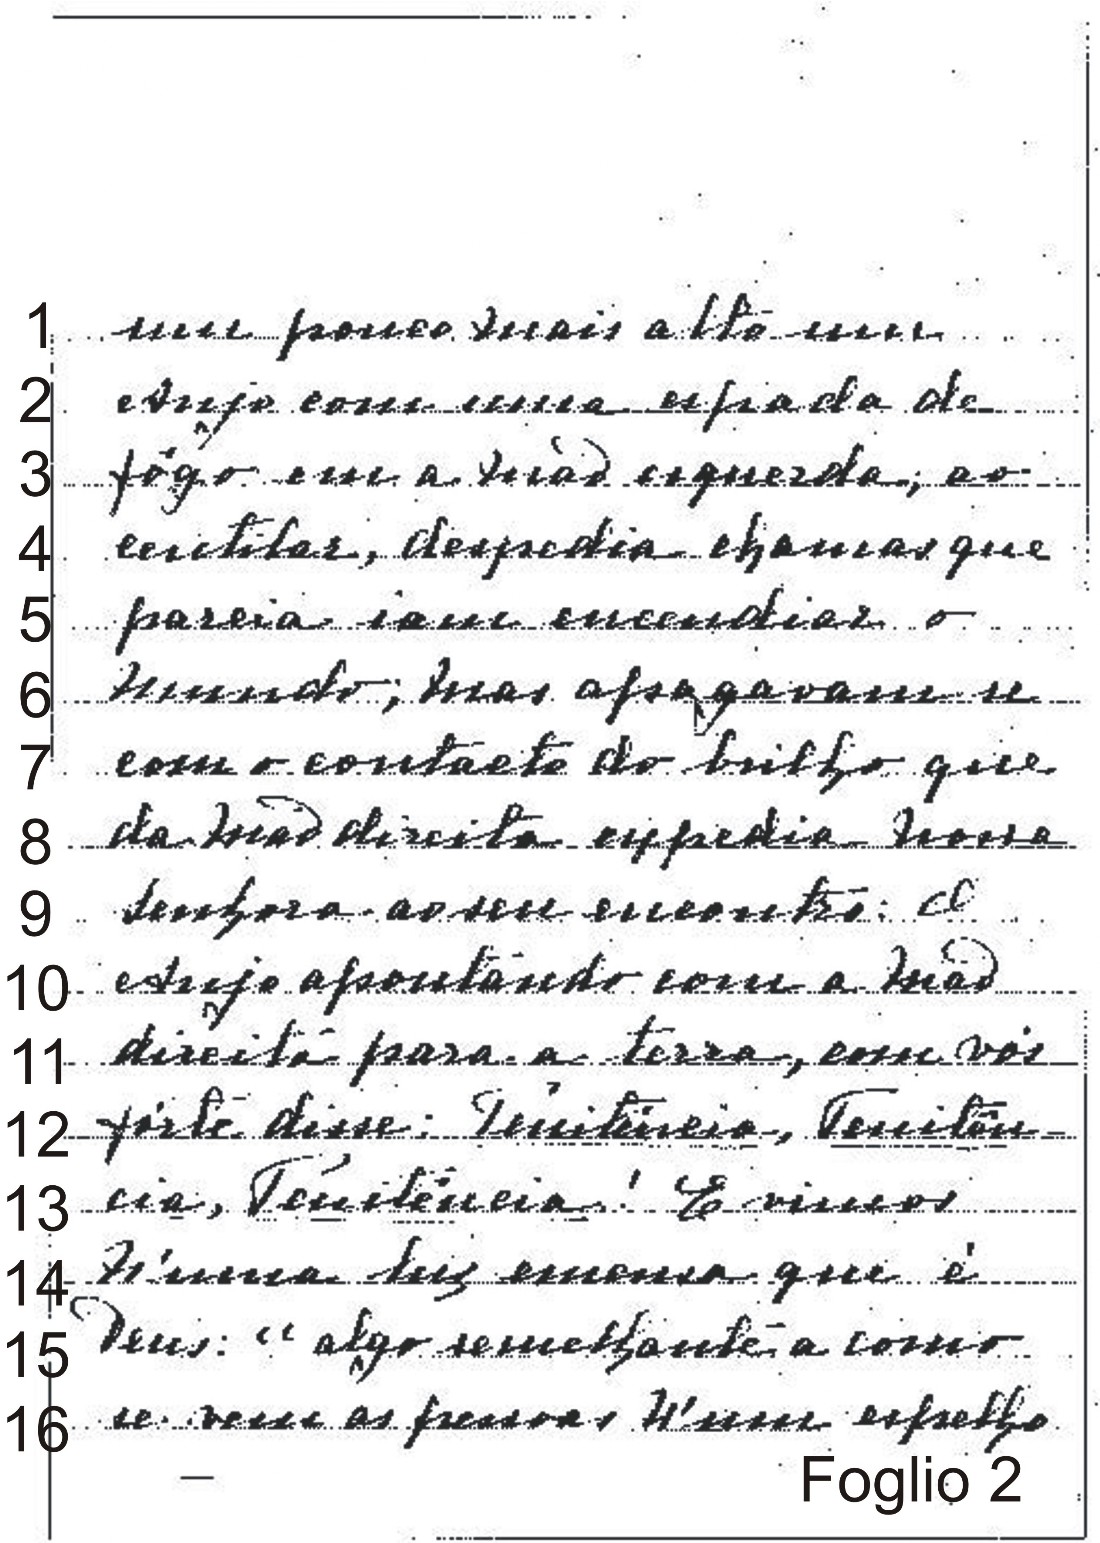 1 um pouco mais alto um
2 Anjo com uma espada de
3 fôgo em a mão esquerda; ao
4 centilar, despedia chamas que
5 parcia iam encendiar o
6 mundo; mas apagavam-se
7 com o contacto do brilho que
8 da mão direita expedia Nossa
9 Senhora ao seu encontro: O
10 Anjo apontando com a mão
11 direita para a terra, com vós
12 fórte disse: Penitência, Peniten-
13 cia, Penitência! E vimos
14 n'uma luz emensa que é
15 Deus: “algo semelhante a como
16 se vem as pessoas n'um espelho
Foglio 2